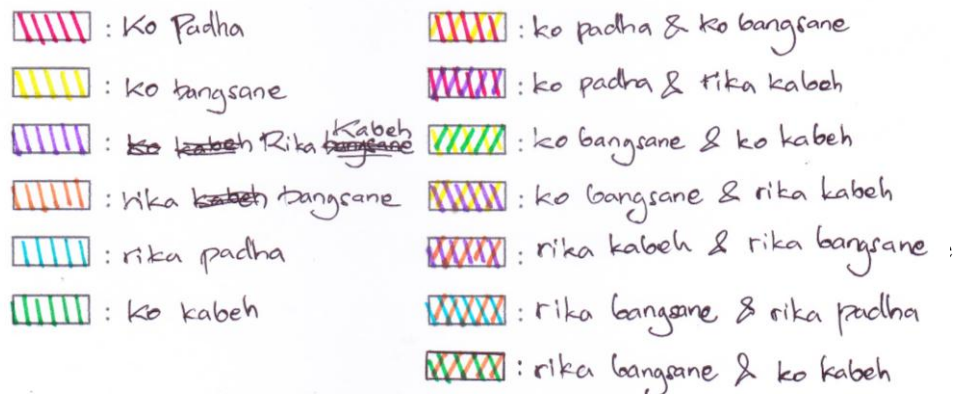 : Ko Padha
: ko bangsane
: Rika Kabeh
: rika bangsane
: rika padha
: ko kabeh
: ko padha & ko bangsane
: ko padha & rika kabeh
: ko bangsane & ko kabeh
: ko bangsane & rika kabeh
: rika kabeh & rika bangsane
: rika bangsane & rika padha
: rika bangsane & ko kabeh